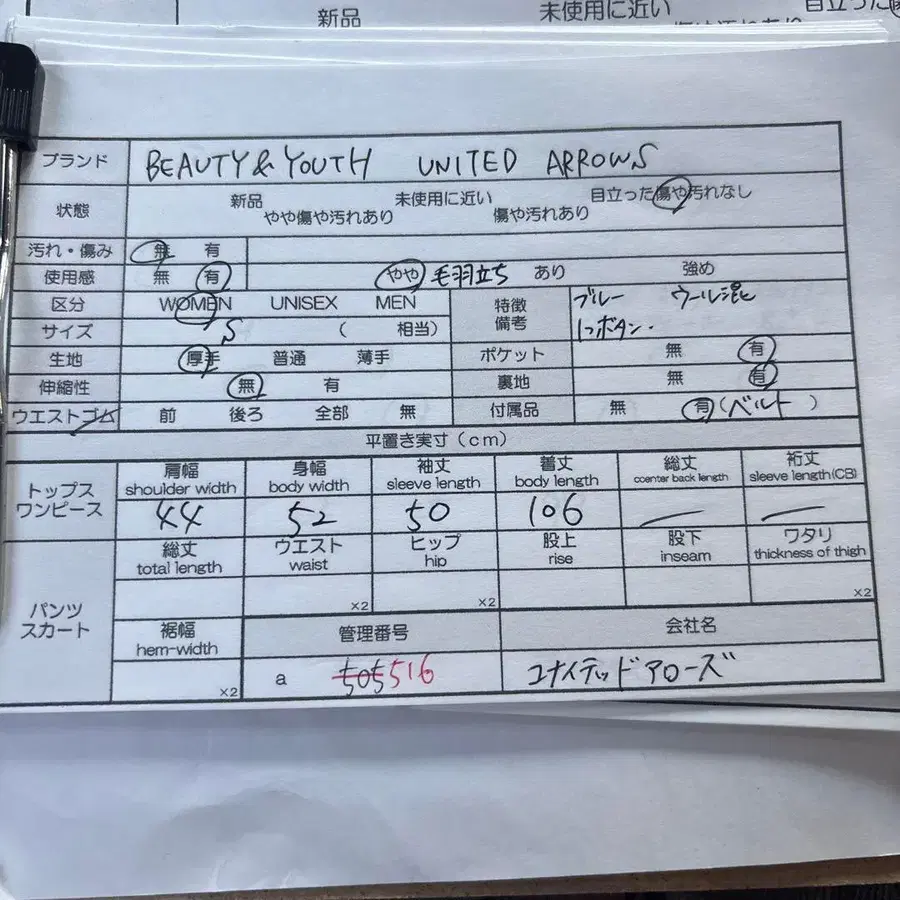 新品 未使用に近い 目立った傷
ブランド BEAUTY & YOUTH UNITED ARROWS
状態 新品 未使用に近い 目立った傷や汚れなし
やや傷や汚れあり 傷や汚れあり
汚れ・傷み 無 有
使用感 無 有 やや 毛羽立ち あり 強め
区分 WOMEN UNISEX MEN
特徴 備考 ブルー ウール混
1つボタン.
サイズ S ( 相当)
生地 厚手 普通 薄手 ポケット 無 有
伸縮性 無 有 裏地 無 有
ウエストゴム 前 後ろ 全部 無 付属品 無 有(ベルト )
平置き実寸(cm)
トップス ワンピース
肩幅 身幅 袖丈 着丈 総丈 裄丈
shoulder width body width sleeve length body length coenter back length sleeve length(CB)
44 52 50 106
パンツ スカート
総丈 ウエスト ヒップ 股上 股下 ワタリ
total length waist hip rise inseam thickness of thigh
×2 ×2 ×2
裾幅 管理番号 会社名
hem-width
×2 a 505 516 ユナイテッドアローズ